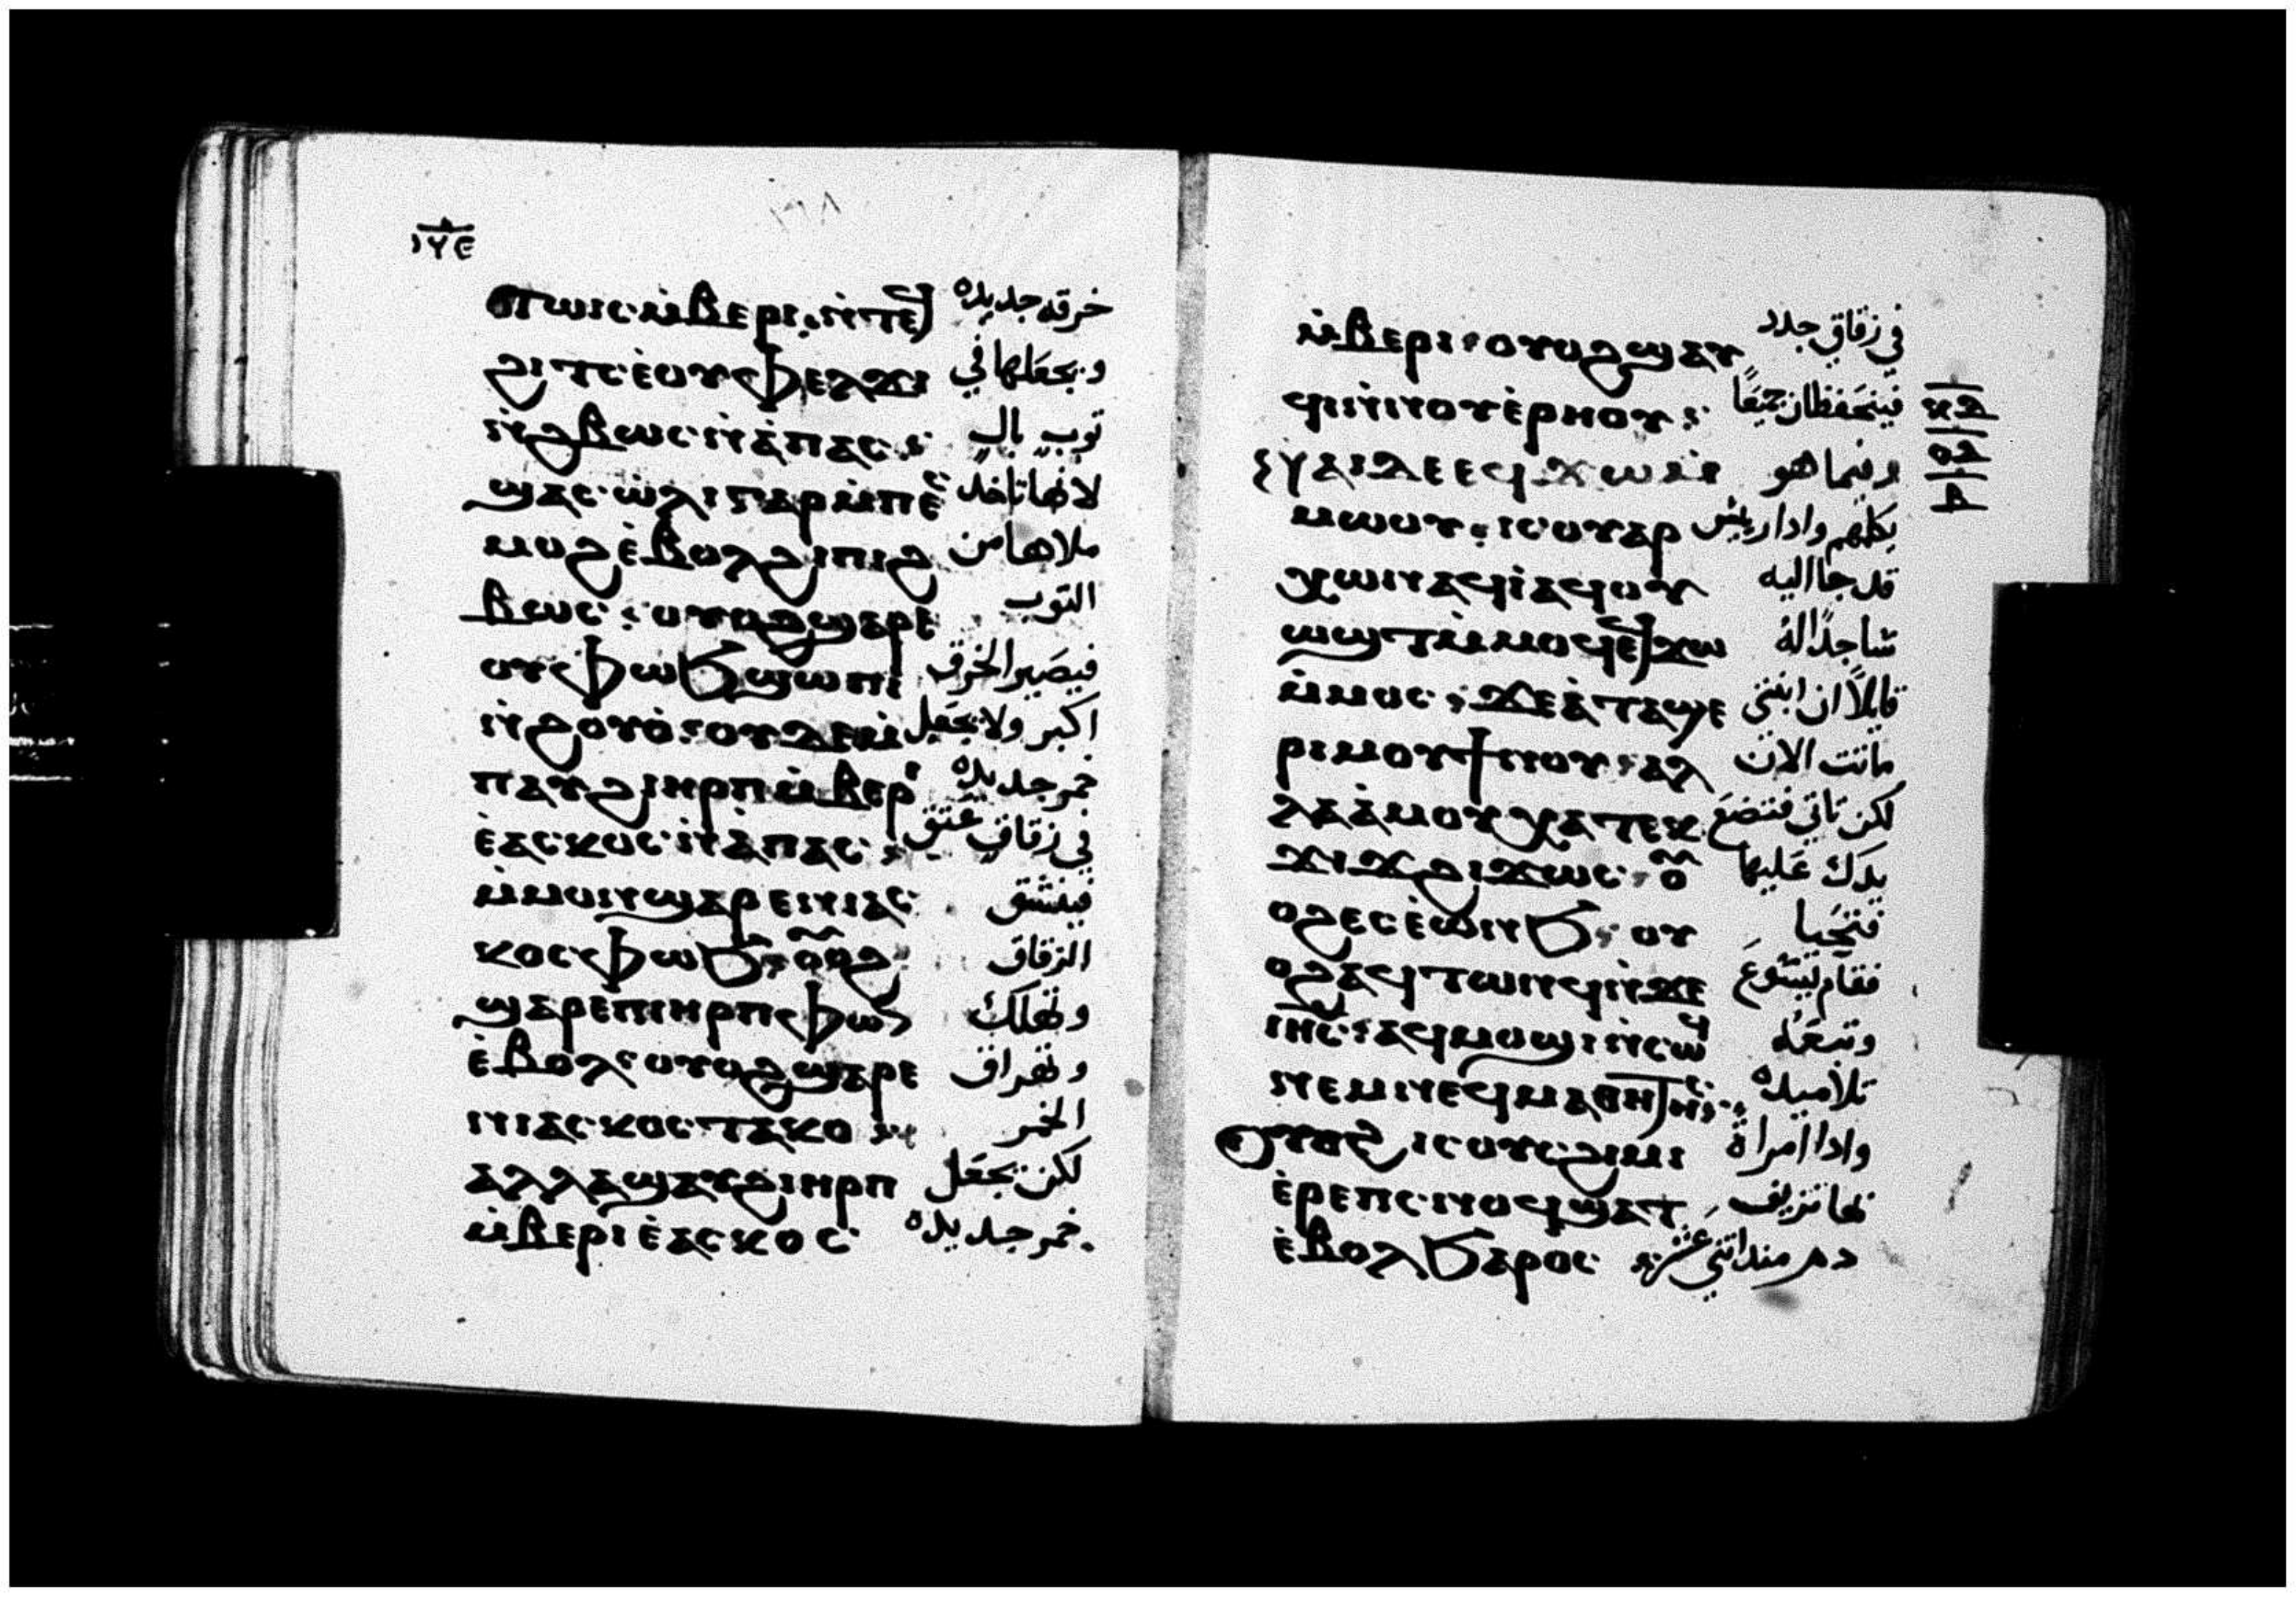 ⲧⲱⲓⲥ ⲙ̀ⲃⲉⲣⲓ: ⲛ̀ⲧⲉϥ خرقه جديده
ϩⲓⲧⲥ ⲉ̀ⲟⲩⲫⲉⲗϫⲓ ويجعلها في
ⲛ̀ϩⲃⲱⲥ ⲛ̀ⲁ̀ⲡⲁⲥ: توب بال
ϣⲁⲥⲱ̀ⲗⲓ ⲅⲁⲣ ⲙ̀ⲡⲉⲥ لانها تاخد
ⲙⲟϩ ⲉ̀ⲃⲟⲗ ϩⲓ ⲡⲓϩ ملاها من
ⲃⲱⲥ: ⲟⲩⲟϩ ϣⲁⲣⲉ التوب
ⲟⲩⲫⲱϧ ϣⲱⲡⲓ فيصير الخرق
ⲛ̀ϩⲟⲩⲟ̀: ⲟⲩⲇⲉ ⲙ اكبر ولا يجعل
ⲡⲁⲩϩⲓ ⲏⲣⲡ ⲙ̀ⲃⲉⲣⲓ خمر جديده
ⲉ̀ⲁⲥⲕⲟⲥ ⲛ̀ⲁ̀ⲡⲁⲥ: في زقاق عتق
ⲙ̀ⲙⲟⲛ ϣⲁⲣⲉ ⲛⲓⲁⲥ فينشق
ⲕⲟⲥ ⲫⲱϧ: ⲟⲩⲟϩ الزقاق
ϣⲁⲣⲉ ⲡⲓⲏⲣⲡ ⲫⲱⲛ وتهلك
ⲉ̀ⲃⲟⲗ: ⲟⲩⲟϩ ϣⲁⲣⲉ وتهراق
ⲛⲓⲁⲥⲕⲟⲥ ⲧⲁⲕⲟ: الخمر
ⲁⲗⲗⲁ ϣⲁⲩϩⲓ ⲏⲣⲡ لكن تجعل
ⲙ̀ⲃⲉⲣⲓ ⲉ̀ⲁⲥⲕⲟⲥ خمر جديده
ⲙ̀ⲃⲉⲣⲓ: ⲟⲩⲟϩ ϣⲁⲩ في زقاق جدد
ϥⲓ ⲛ̀ⲛⲟⲩⲉ̀ⲣⲏⲟⲩ: فينحفظان جميعًا
ⲛⲁⲓ ⲇⲉ ⲉϥϫⲱ ⲙ̀ وفيما هو
ⲙⲱⲟⲩ: ⲓⲥ ⲟⲩⲁⲣ يكلمهم وادا ريس
ⲭⲱⲛ ⲁϥⲓ̀ ⲁϥⲟⲩ قد جا اليه
ⲱϣⲧ ⲙ̀ⲙⲟϥ ⲉϥϫⲱ ساجدًا له
ⲙ̀ⲙⲟⲥ: ϫⲉ ⲁ̀ ⲧⲁϣⲉ قايلًا ان ابنتي
ⲣⲓ ⲙⲟⲩ ϯⲛⲟⲩ: ⲁⲗ ماتت الان
ⲗⲁ ⲁ̀ⲙⲟⲩ ⲭⲁ ⲧⲉⲕ لكن تاتي فتضع
ϫⲓϫ ϩⲓϫⲱⲥ: ⲟⲩ يدك عليها
ⲟϩ ⲉⲥⲉ̀ⲱⲛϧ: ⲟⲩ فتحيا
ⲟϩ ⲁϥⲧⲱⲛϥ ⲛ̀ϫⲉ فقام يسوع
ⲓⲏⲥ: ⲁϥⲙⲟϣⲓ ⲛ̀ⲥⲱϥ وتبعه
ⲛⲉⲙ ⲛⲉϥⲙⲁⲑⲏⲧⲏⲥ: تلاميده
ⲟⲩⲟϩ ⲓⲥ ⲟⲩⲥϩⲓⲙⲓ وادا امراة
ⲉ̀ⲣⲉ ⲡⲥⲛⲟϥ ϣⲁⲧ بها نزيف
ⲉ̀ⲃⲟⲗ ϧⲁⲣⲟⲥ دم مند اتني عشر